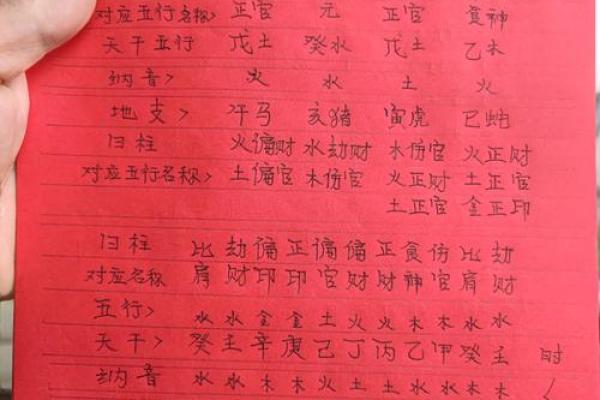 对应五行名称> 正官 元 正官 食神
天干五行 戊土 癸水 戊土 乙木
纳音> 火 水 土 火
地支> 午马 亥猪 寅虎 巳蛇
归柱 火偏财 水劫财 木伤官 火正财
对应五行名称> 土偏官 木伤官 火正财 土正官
土正官 金正印
归柱 比 劫 偏 正 偏 偏 正 食 伤 比 劫
对应名称 肩 财 印 印 官 财 财 神 官 肩 财
五行> 水 水 金 金 土 火 火 木 木 水 水
天干> 癸 壬 辛 庚 己 丁 丙 乙 甲 癸 壬 时
纳音 水 水 木 木 火 土 土 水 水 木 木